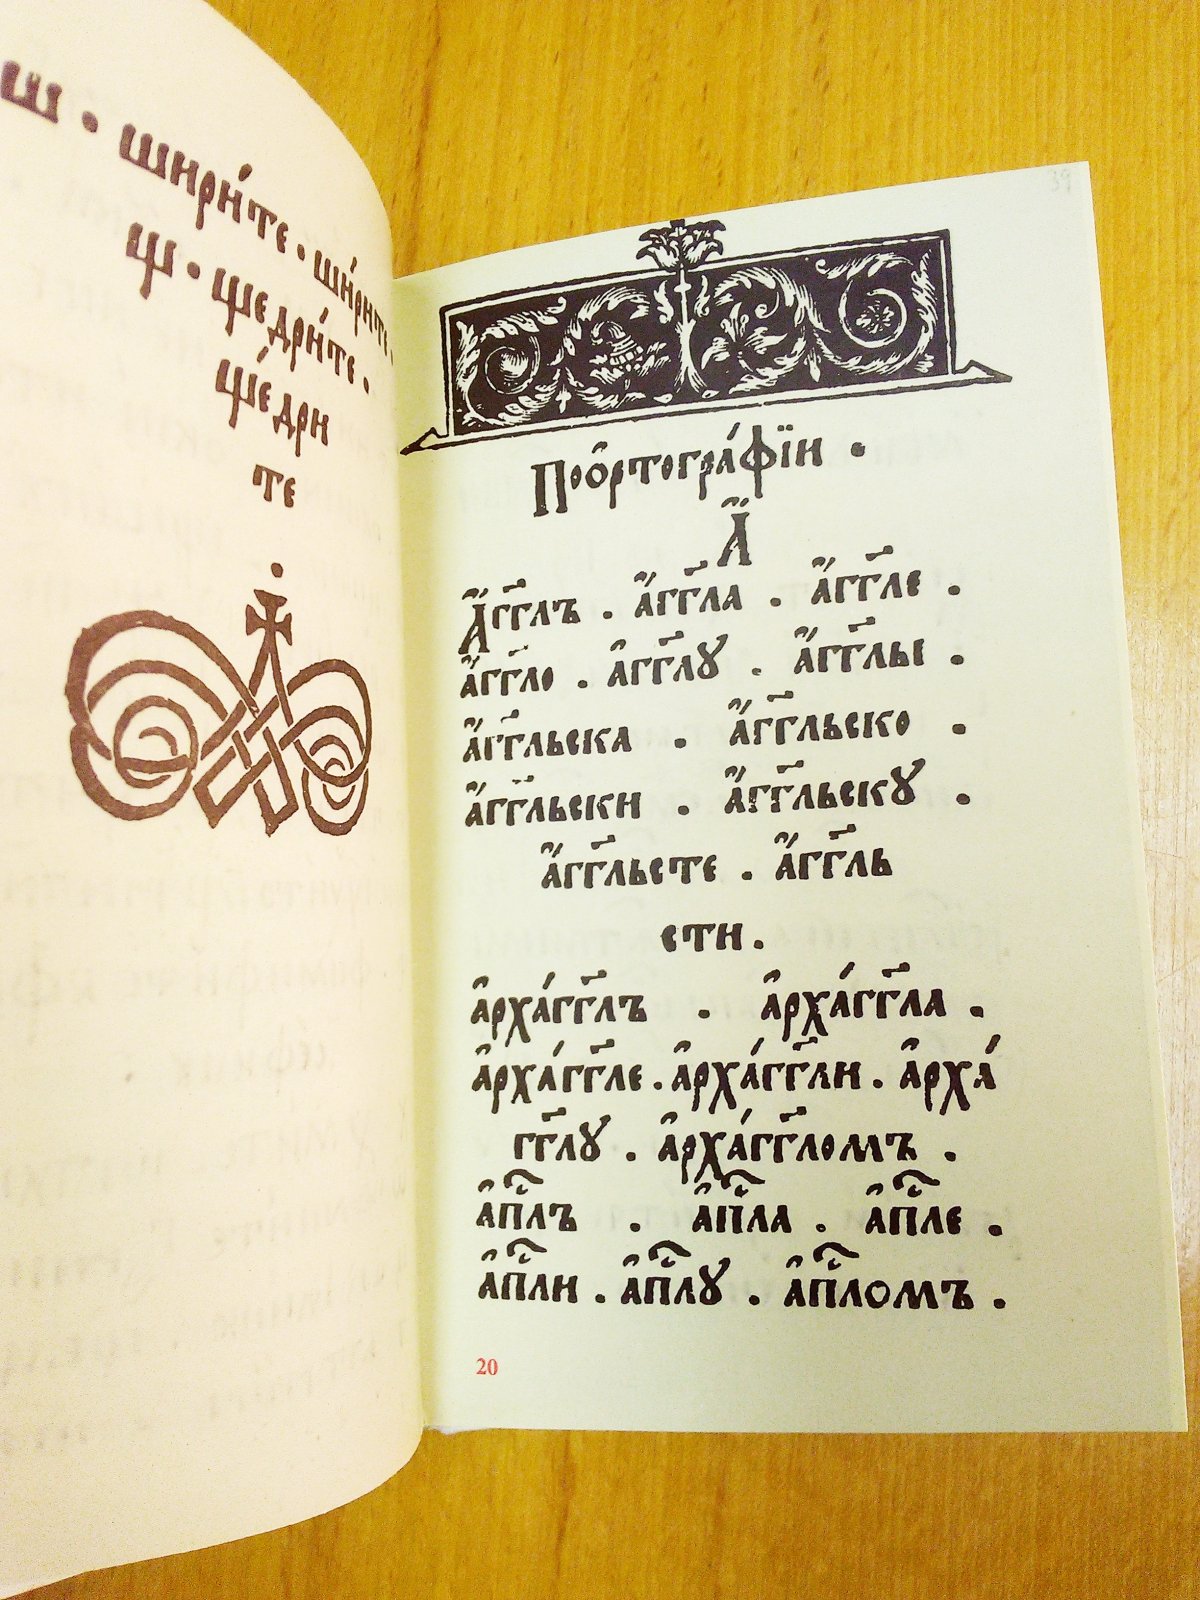 Ш · шири́те · ши́рите ·
Щ · щедри́те ·
ще́дри
те
39
Поо҆ртогра́фїи ·
А҆́
А҆́гг҃лъ . а҆́гг҃ла . а҆́гг҃ле .
а҆́гг҃ло . а҆гг҃лꙋ . а҆́гг҃лы .
а҆́гг҃льска . а҆́гг҃льско .
а҆́гг҃льски . а҆́гг҃льскꙋ .
а҆́гг҃льсте . а҆́гг҃ль
сти .
а҆рха́гг҃лъ . а҆рха́гг҃ла .
а҆рха́гг҃ле . а҆рха́гг҃ли . а҆рха́
гг҃лꙋ . а҆рха́гг҃ломъ .
а҆пⷭ҇лъ . а҆пⷭ҇ла . а҆пⷭ҇ле .
а҆пⷭ҇ли . а҆пⷭ҇лꙋ . а҆пⷭ҇ломъ .
20